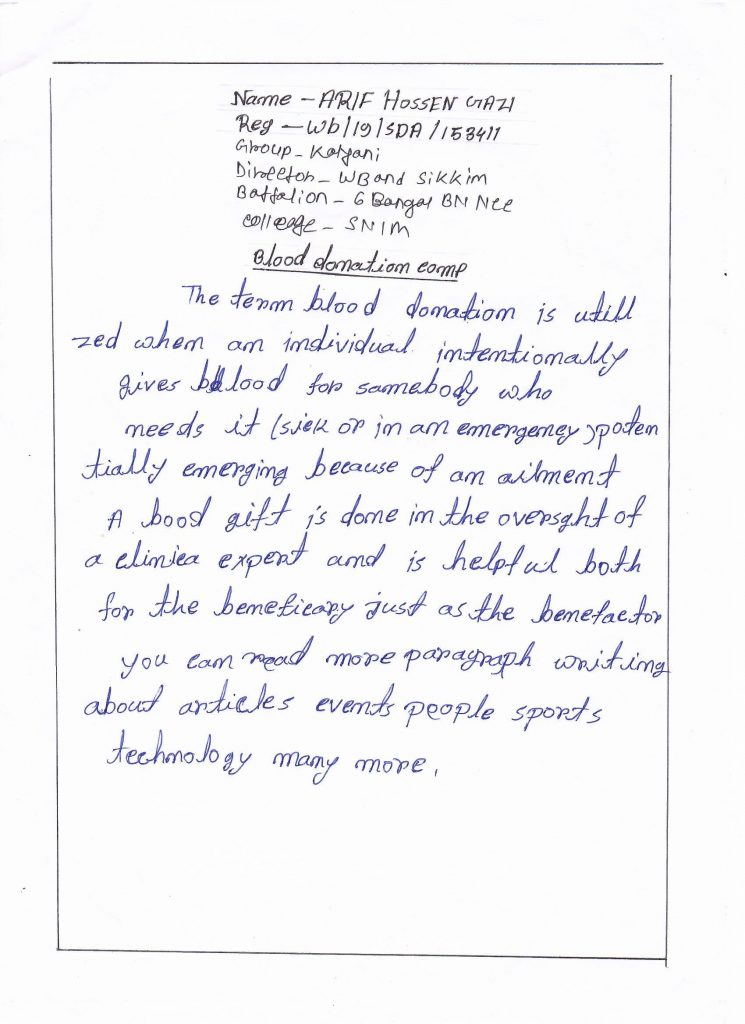 Name - ARIF HOSSEN GAZI
Reg - Wb/19/SDA/153411
Group - Kalyani
Director - WB and Sikkim
Battalion - 6 Bangal BN Ncc
college - SNIM
Blood donation comp
The term blood donation is utili
zed when an individual intentionally
gives blood for samebody who
needs it (sick or in an emergency) poten
tially emerging because of an ailment
A bood gift is done in the oversght of
a clinica expert and is helpful both
for the beneficary just as the benefactor
you can read more paragraph writing
about articles events people sports
technology many more,